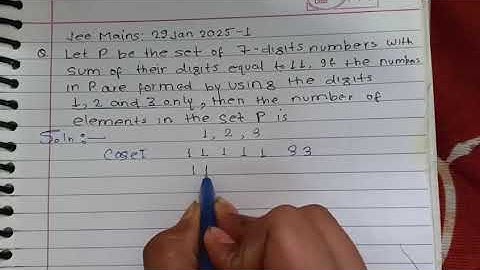 Jee Mains: 29 Jan 2025-1
Q. Let P be the set of 7-digits numbers with
sum of their digits equal to 11, If the number
in P are formed by using the digits
1, 2 and 3 only, then the number of
elements in the set P is
Soln:-
1, 2, 3
Case I 1 1 1 1 1 3 3
1 1